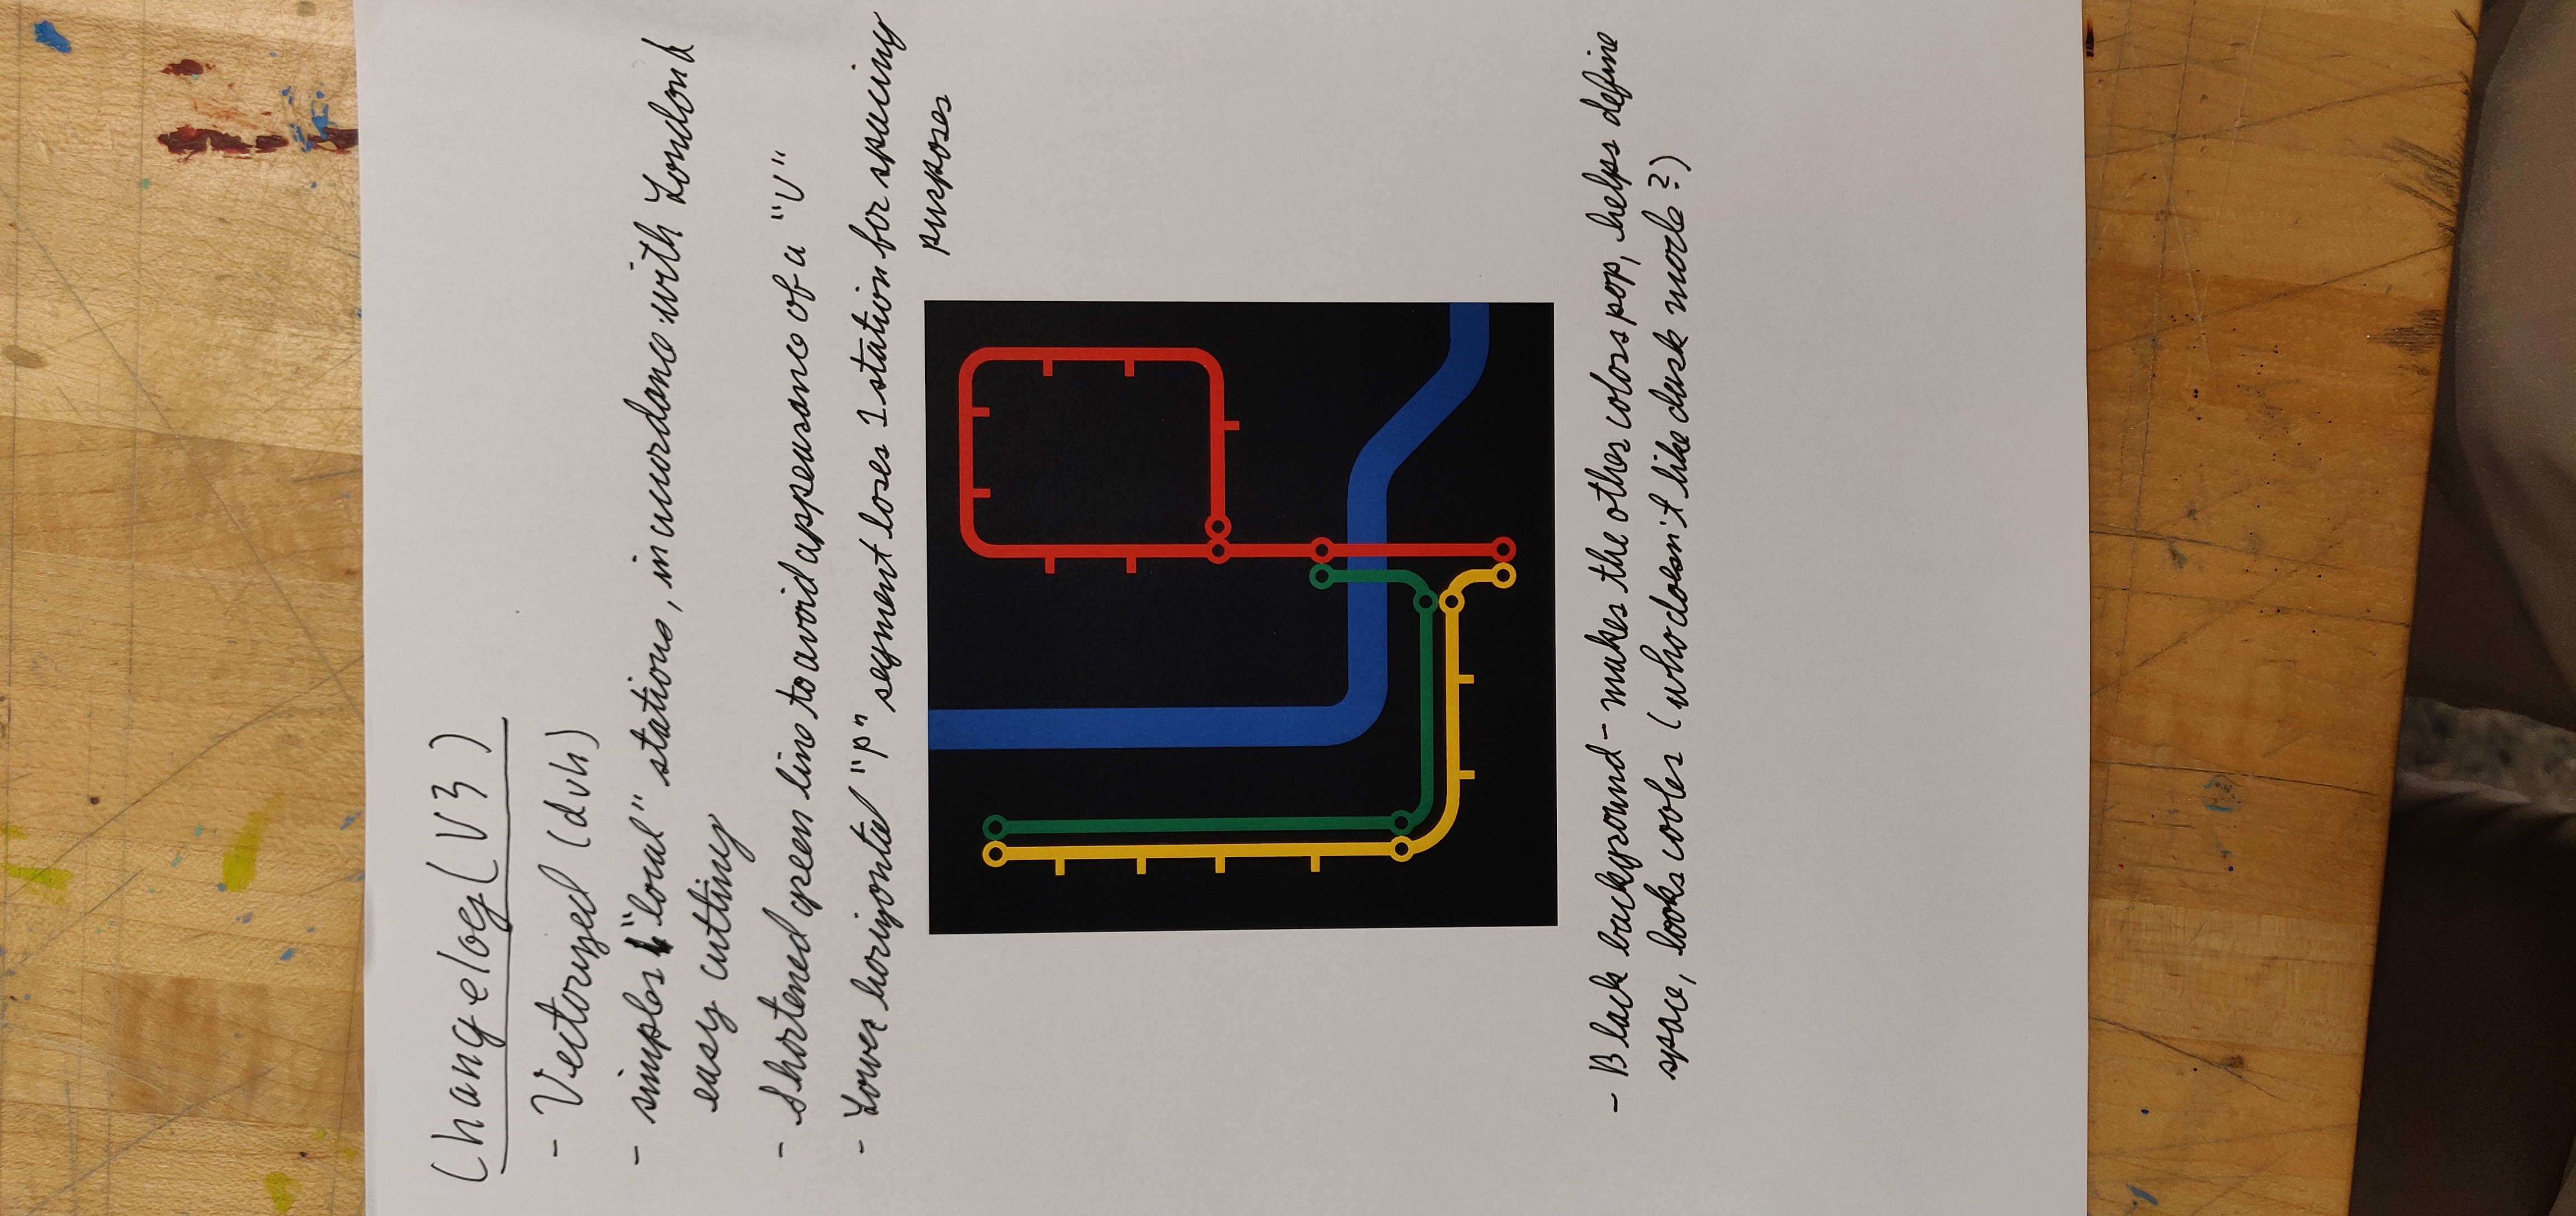 Changelog (V3)
- Vectorized (duh)
- simpler "local" stations, in accordance with London &
easy cutting
- Shortened green line to avoid appearance of a "U"
- Lower horizontal "P" segment loses 1 station for spacing
purposes
- Black background - makes the other colors pop, helps define
space, looks cooler (who doesn't like dark mode?)